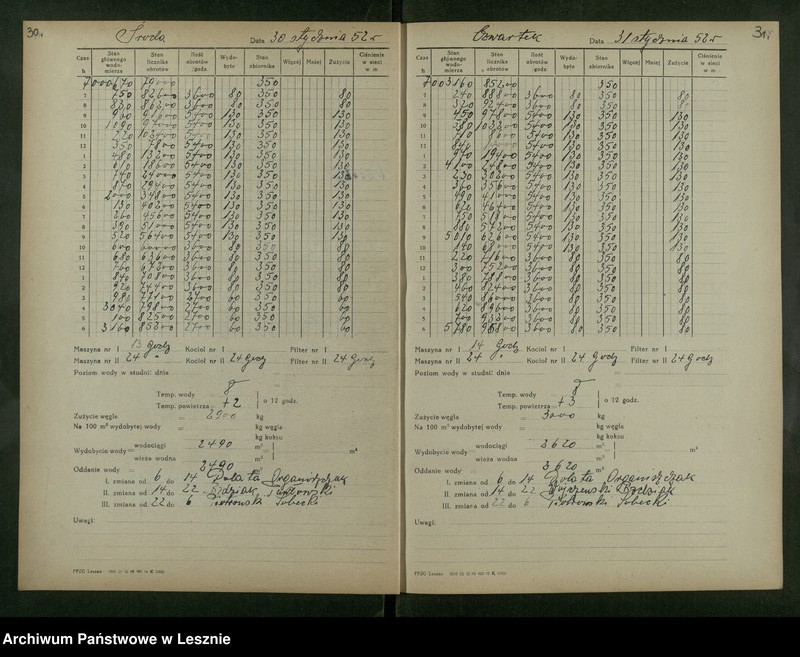 30.
Środa Data 30 stycznia 52 r
Czas h Stan głównego wodomierza Stan licznika obrotów Ilość obrotów /godz. Wydobyte Stan zbiornika Więcej Mniej Zużycie Ciśnienie w sieci w m
7000670 350
7 750 82600 3600 80 350 80
8 830 86200 3600 80 350 80
9 5400 130 350 130
10 5400 130 350 130
11 130 350 130
12 350 5400 130 350 130
1 480 5400 130 350 130
2 610 5400 130 350 130
3 740 24000 5400 130 350 130
4 870 29400 5400 130 350 130
5 2000 34800 5400 130 350 130
6 130 40200 5400 130 350 130
7 260 45600 5400 130 350 130
8 390 51000 5400 130 350 130
9 520 56400 5400 130 350 130
10 600 60000 3600 80 350 80
11 680 63600 3600 80 350 80
12 760 67200 3600 80 350 80
1 840 70800 3600 80 350 80
2 920 74400 3600 80 350 80
3 980 77100 2700 60 350 60
4 3040 79800 2700 60 350 60
5 100 82500 2700 60 350 60
6 3160 85200 2700 60 350 60
Maszyna nr I 13 godz Kocioł nr I Filter nr I
Maszyna nr II 24 " Kocioł nr II 24 godz Filter nr II 24 godz
Poziom wody w studni: dnia =
Temp. wody 8
Temp. powietrza + 2 o 12 godz.
Zużycie węgla = 2900 kg
Na 100 m³ wydobytej wody = kg węgla
kg koksu
Wydobycie wody wodociągi 2490 m³
wieża wodna m³ m³
Oddanie wody = 2490
I. zmiana od 6 do 14 Dolata Organiszczak
II. zmiana od 14 do 22 Bździak Piotrowski
III. zmiana od 22 do 6 Piotrowski Sobecki
Uwagi:
PPZG Leszno
31.
Czwartek Data 31 stycznia 52 r
Czas h Stan głównego wodomierza Stan licznika obrotów Ilość obrotów /godz. Wydobyte Stan zbiornika Więcej Mniej Zużycie Ciśnienie w sieci w m
7003160 85200 350
7 240 88800 3600 80 350 80
8 320 92400 3600 80 350 80
9 450 97800 5400 130 350 130
10 5400 130 350 130
11 5400 130 350 130
12 5400 130 350 130
1 970 19400 5400 130 350 130
2 4100 24800 5400 130 350 130
3 230 30200 5400 130 350 130
4 360 35600 5400 130 350 130
5 490 41000 5400 130 350 130
6 620 46400 5400 130 350 130
7 750 51800 5400 130 350 130
8 880 57200 5400 130 350 130
9 5010 62600 5400 130 350 130
10 140 68000 5400 130 350 130
11 220 71600 3600 80 350 80
12 300 75200 3600 80 350 80
1 380 78800 3600 80 350 80
2 460 82400 3600 80 350 80
3 540 86000 3600 80 350 80
4 620 89600 3600 80 350 80
5 700 93200 3600 80 350 80
6 5780 96800 3600 80 350 80
Maszyna nr I 14 godz Kocioł nr I Filter nr I
Maszyna nr II 24 " Kocioł nr II 24 godz Filter nr II 24 godz
Poziom wody w studni: dnia =
Temp. wody 8
Temp. powietrza + 3 o 12 godz.
Zużycie węgla = 3000 kg
Na 100 m³ wydobytej wody = kg węgla
kg koksu
Wydobycie wody wodociągi 2620 m³
wieża wodna m³ m³
Oddanie wody = 2620 m³
I. zmiana od 6 do 14 Dolata Organiszczak
II. zmiana od 14 do 22 Bździak
III. zmiana od 22 do 6 Piotrowski Sobecki
Uwagi:
PPZG Leszno
Archiwum Państwowe w Lesznie